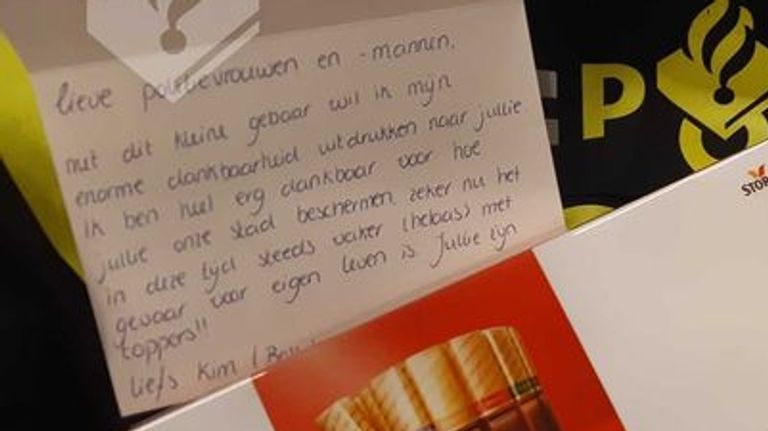 lieve politievrouwen en -mannen,
met dit kleine gebaar wil ik mijn
enorme dankbaarheid uitdrukken naar jullie
ik ben heel erg dankbaar voor hoe
jullie onze stad beschermen, zeker nu het
in deze tijd steeds vaker (helaas) met
gevaar voor eigen leven is Jullie zijn
toppers!!
liefs Kim
P
STOR